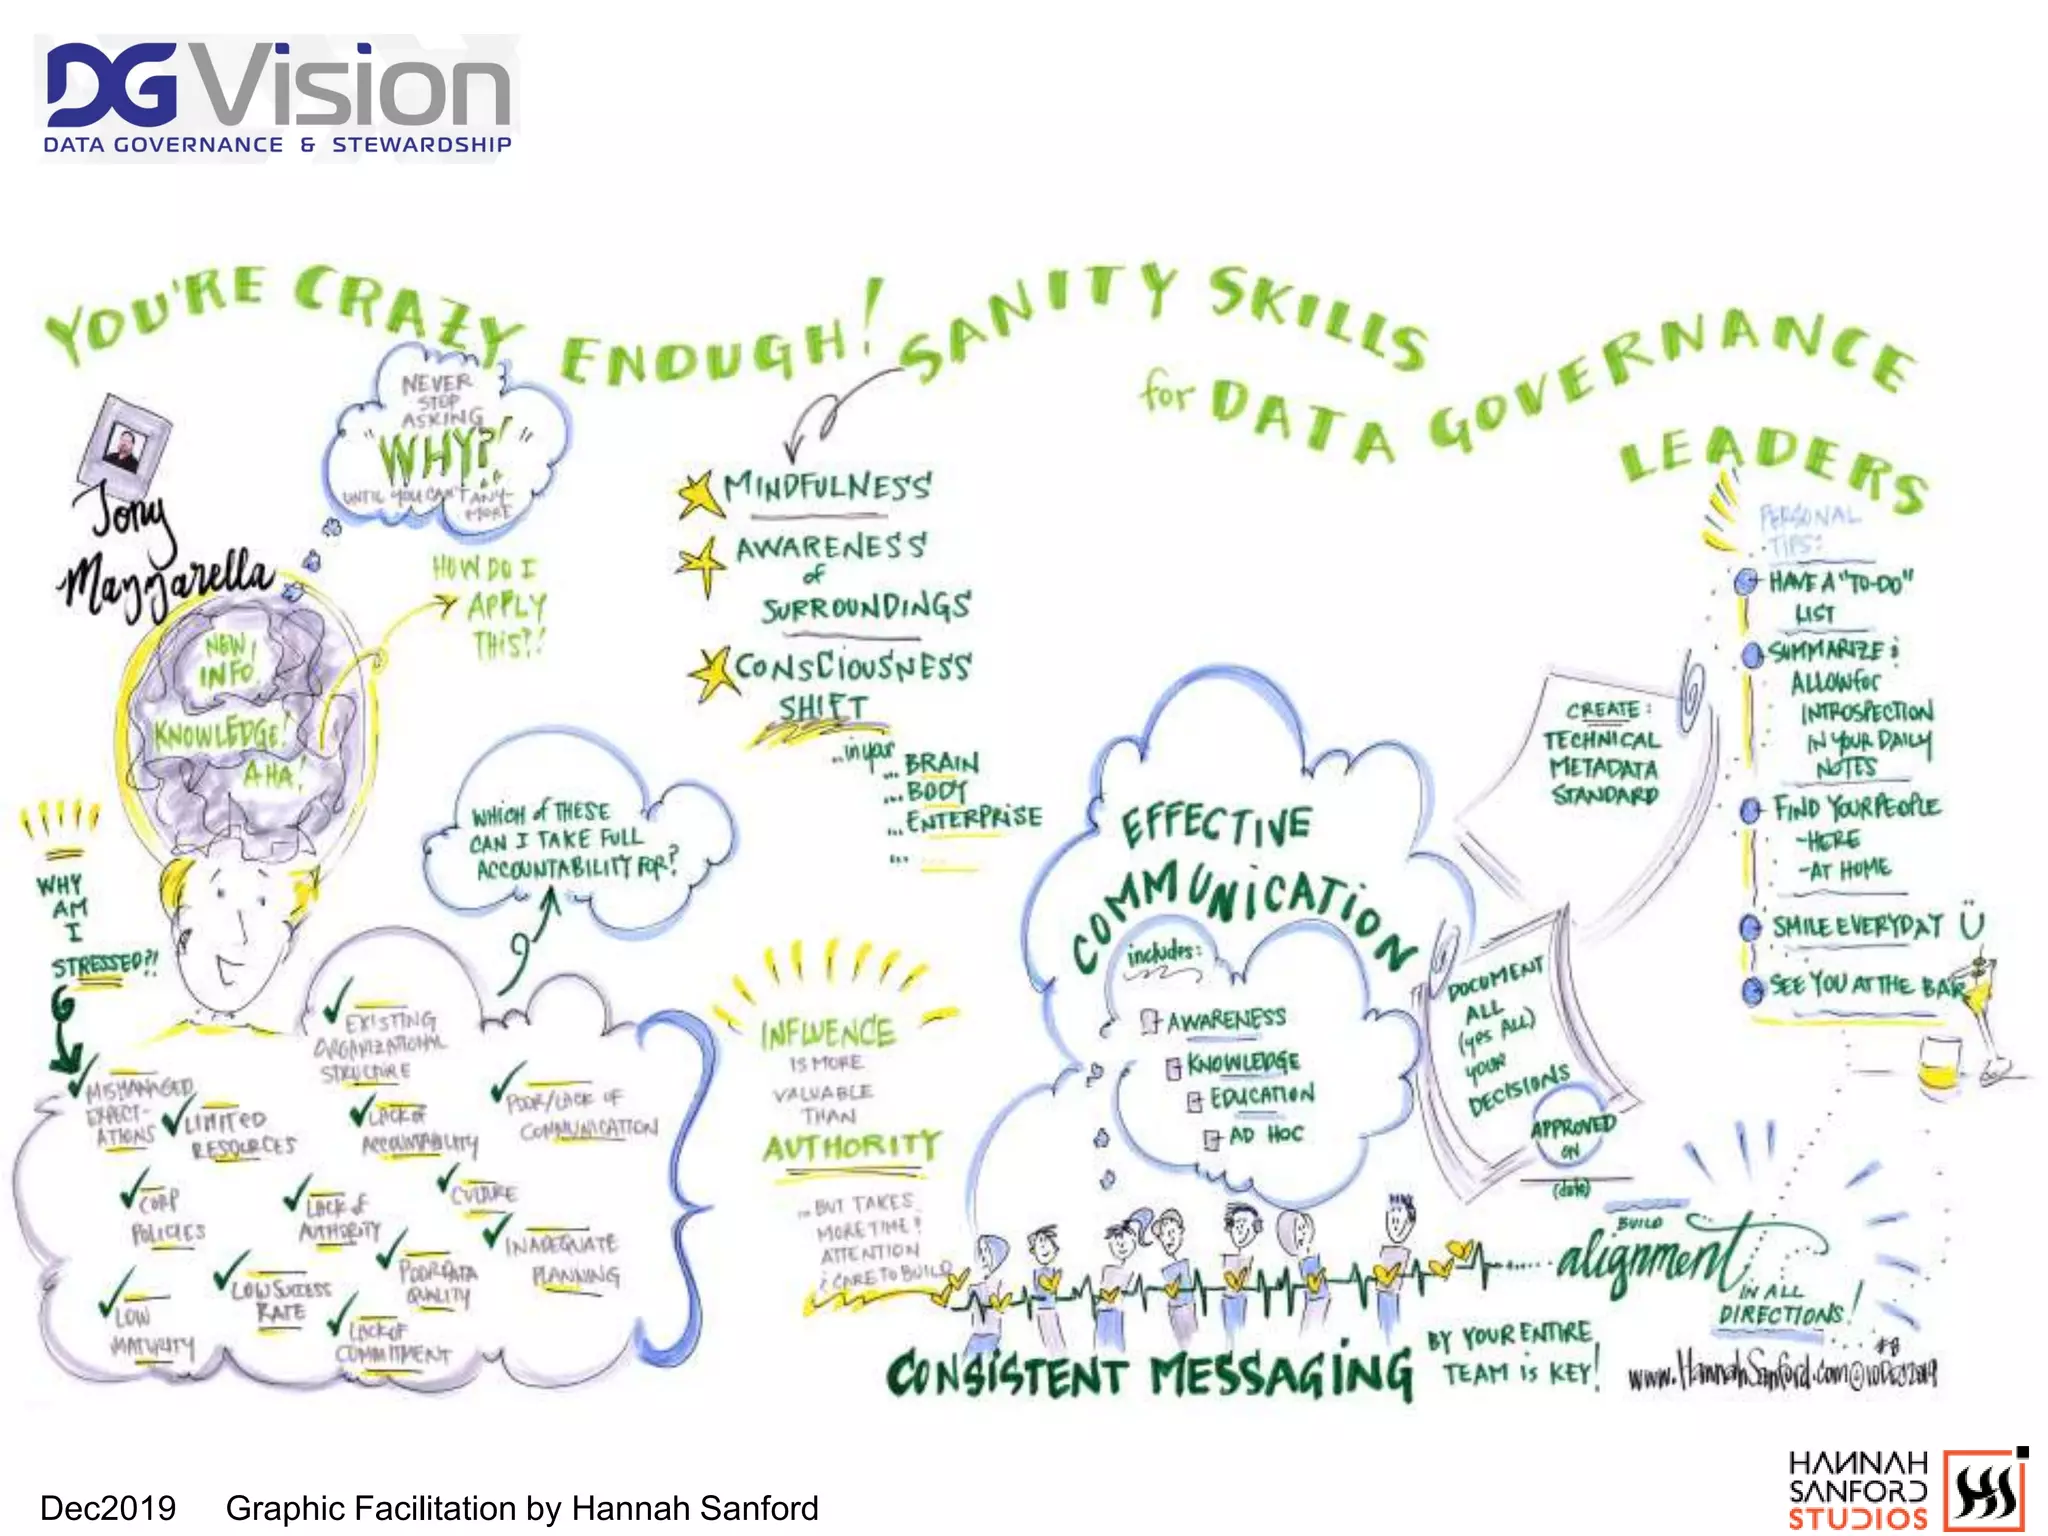 DG Vision
DATA GOVERNANCE & STEWARDSHIP
YOU'RE CRAZY ENOUGH! SANITY SKILLS
for DATA GOVERNANCE
LEADERS
Tony
Mazzarella
NEVER
STOP
ASKING
"WHY?!"
UNTIL YOU CAN'T ANY-
MORE
NEW
INFO!
KNOWLEDGE!
AHA!
HOW DO I
APPLY
THIS?!
MINDFULNESS
AWARENESS
of
SURROUNDINGS
CONSCIOUSNESS
SHIFT
...in your
... BRAIN
... BODY
... ENTERPRISE
...
WHY
AM
I
STRESSED?!
WHICH of THESE
CAN I TAKE FULL
ACCOUNTABILITY FOR?
EXISTING
ORGANIZATIONAL
STRUCTURE
MISMANAGED
EXPECT-
ATIONS
LIMITED
RESOURCES
LACK of
ACCOUNTABILITY
POOR/LACK OF
COMMUNICATION
CORP
POLICIES
LACK of
AUTHORITY
CULTURE
INADEQUATE
PLANNING
LOW
MATURITY
LOW SUCCESS
RATE
POOR DATA
QUALITY
LACK OF
COMMITMENT
INFLUENCE
IS MORE
VALUABLE
THAN
AUTHORITY
...BUT TAKES
MORE TIME!
ATTENTION
& CARE TO BUILD
EFFECTIVE
COMMUNICATION
includes:
AWARENESS
KNOWLEDGE
EDUCATION
AD HOC
CREATE:
TECHNICAL
METADATA
STANDARD
DOCUMENT
ALL
(yes ALL)
YOUR
DECISIONS
APPROVED
ON
(date)
PERSONAL
TIPS:
HAVE A "TO-DO"
LIST
SUMMARIZE &
ALLOW for
INTROSPECTION
IN YOUR DAILY
NOTES
FIND YOUR PEOPLE
-HERE
-AT HOME
SMILE EVERYDAY
SEE YOU AT THE BAR
BUILD
alignment
IN ALL
DIRECTIONS!
CONSISTENT MESSAGING
BY YOUR ENTIRE
TEAM IS KEY!
#8
www.HannahSanford.com
Dec2019 Graphic Facilitation by Hannah Sanford
HANNAH
SANFORD
STUDIOS